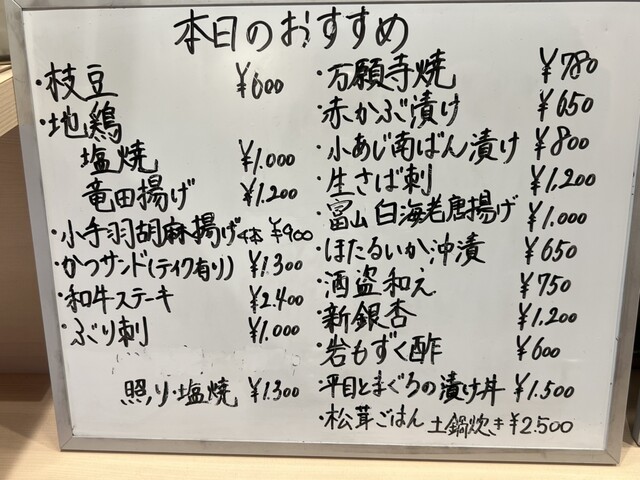 本日のおすすめ
・枝豆 ¥600
・地鶏
塩焼 ¥1.000
竜田揚げ ¥1.200
・小手羽胡麻揚げ4本 ¥900
・かつサンド(テイク有り) ¥1.300
・和牛ステーキ ¥2.400
・ぶり刺 ¥1.000
照り・塩焼 ¥1.300
・万願寺焼 ¥780
・赤かぶ漬け ¥650
・小あじ南ばん漬け ¥800
・生さば刺 ¥1.200
・富山白海老唐揚げ ¥1.000
・ほたるいか沖漬 ¥650
・酒盗和え ¥750
・新銀杏 ¥1.200
・岩もずく酢 ¥600
・平目とまぐろの漬け丼 ¥1.500
・松茸ごはん 土鍋炊き ¥2.500